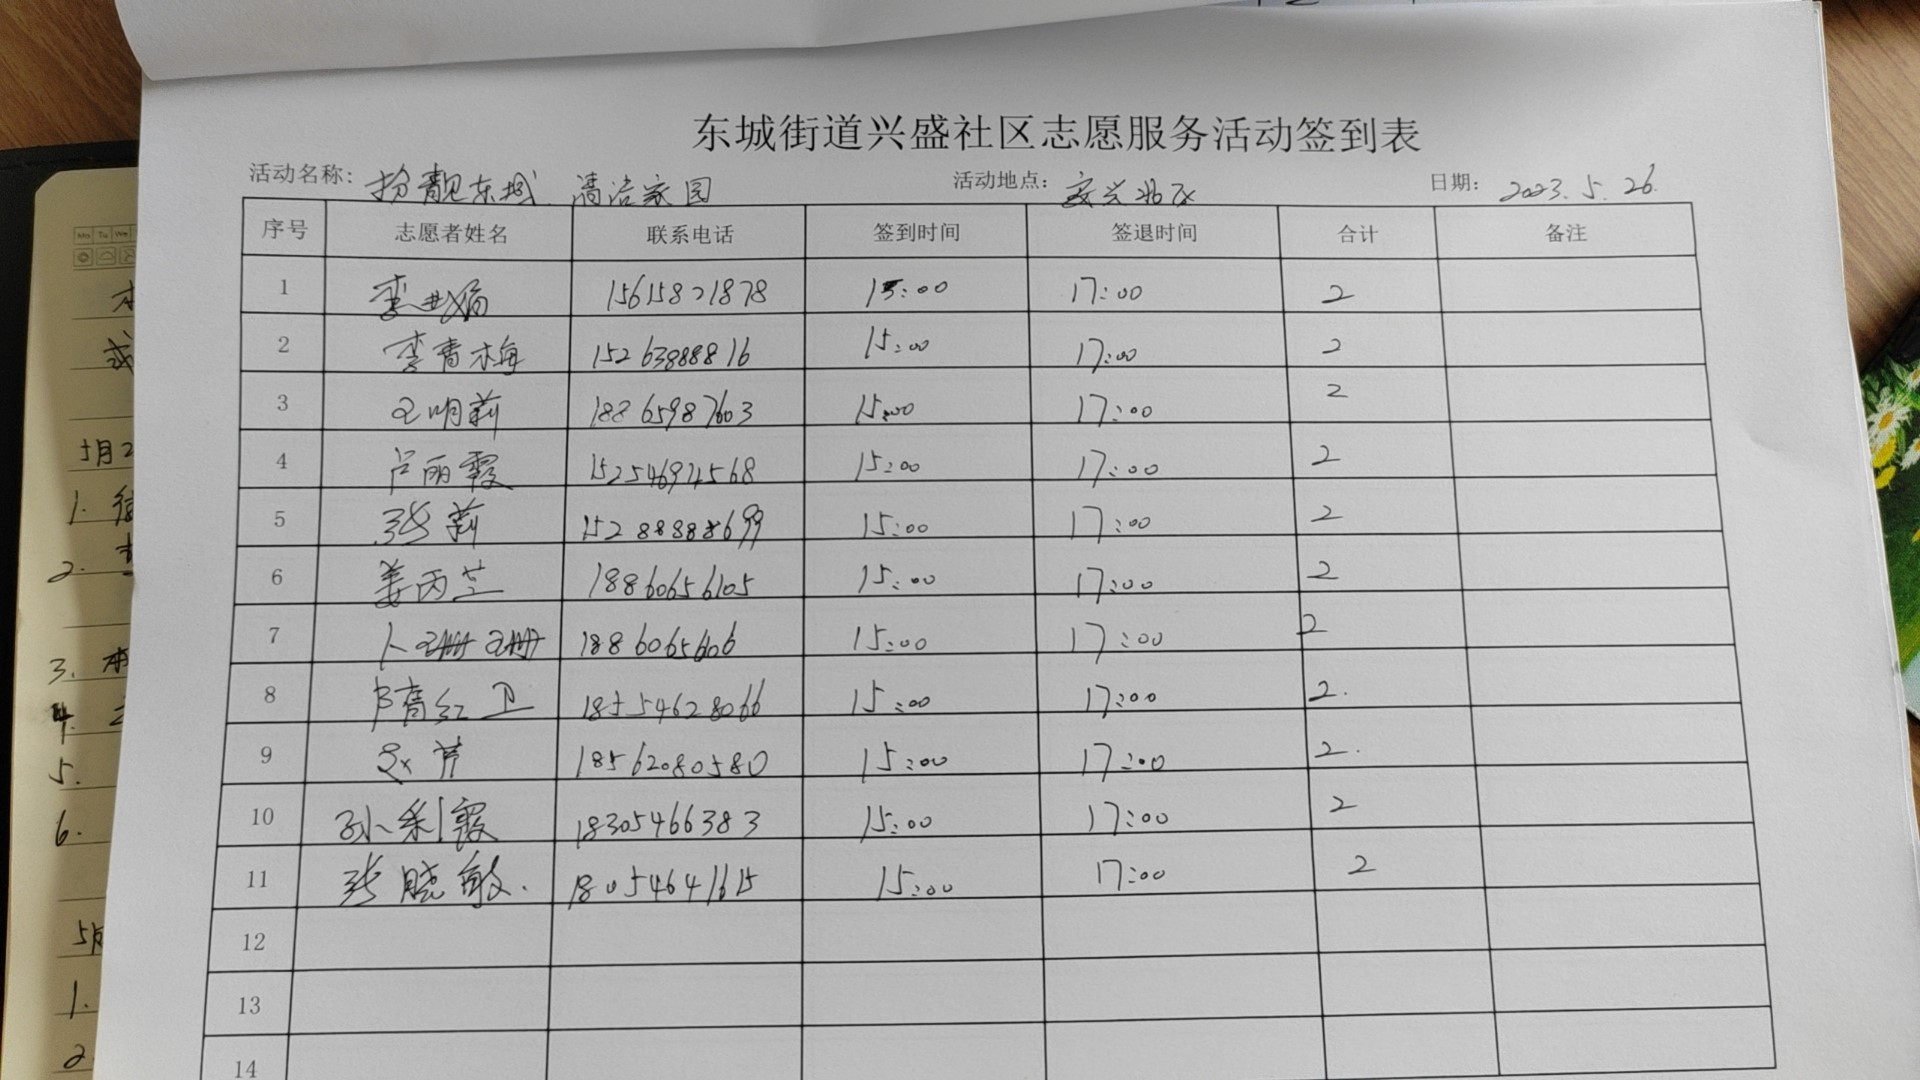 东城街道兴盛社区志愿服务活动签到表
活动名称: 扮靓东城 清洁家园 活动地点: 安兴北区 日期: 2023.5.26.
序号 志愿者姓名 联系电话 签到时间 签退时间 合计 备注
1 李 娟 15615821878 15:00 17:00 2
2 李青梅 15263888816 15:00 17:00 2
3 王明莉 18865987603 15:00 17:00 2
4 吕丽霞 15254694568 15:00 17:00 2
5 张莉 15288888699 15:00 17:00 2
6 姜丙芝 18860656105 15:00 17:00 2
7 卜珊珊 1886065606 15:00 17:00 2
8 隋红卫 18554628066 15:00 17:00 2.
9 赵芹 18562080580 15:00 17:00 2.
10 孙利霞 18305466383 15:00 17:00 2
11 张晓敏. 18054641615 15:00 17:00 2
12
13
14
5月2
1.
2.
3.
4.
5.
6.
5月
1.
2